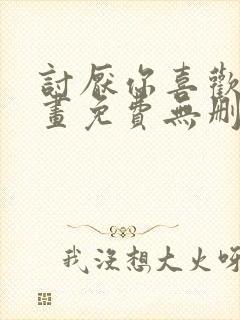 討厭你喜歡
畫免費無刪
我沒想大火呀